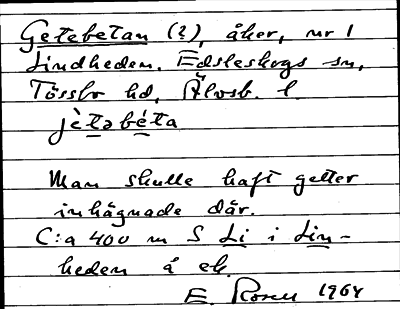 Getebetan (?), åker, nr 1
Lindheden. Edsleskogs sn,
Tössbo hd, Älvsb. l.
jètabéta
Man skulle haft getter
inhägnade där.
C:a 400 m S Li i Lin-
heden å ek.
E. Rosell 1964